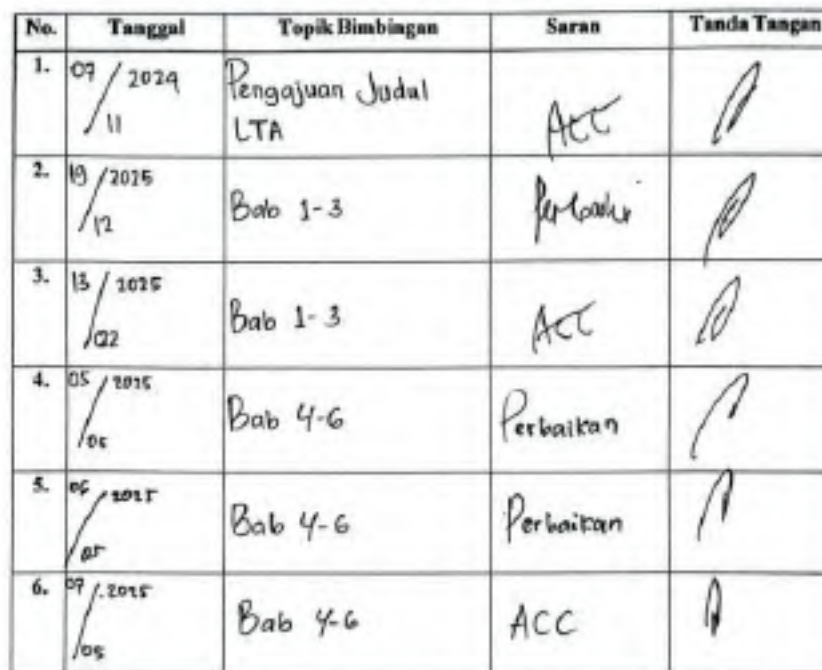 No. Tanggal Topik Bimbingan Saran Tanda Tangan
1. 07/11 2024 Pengajuan Judul LTA ACC
2. 19/12 2025 Bab 1-3 Perbaiki
3. 13/02 2025 Bab 1-3 ACC
4. 05/05 2025 Bab 4-6 Perbaikan
5. 06/05 2025 Bab 4-6 Perbaikan
6. 07/05 2025 Bab 4-6 ACC